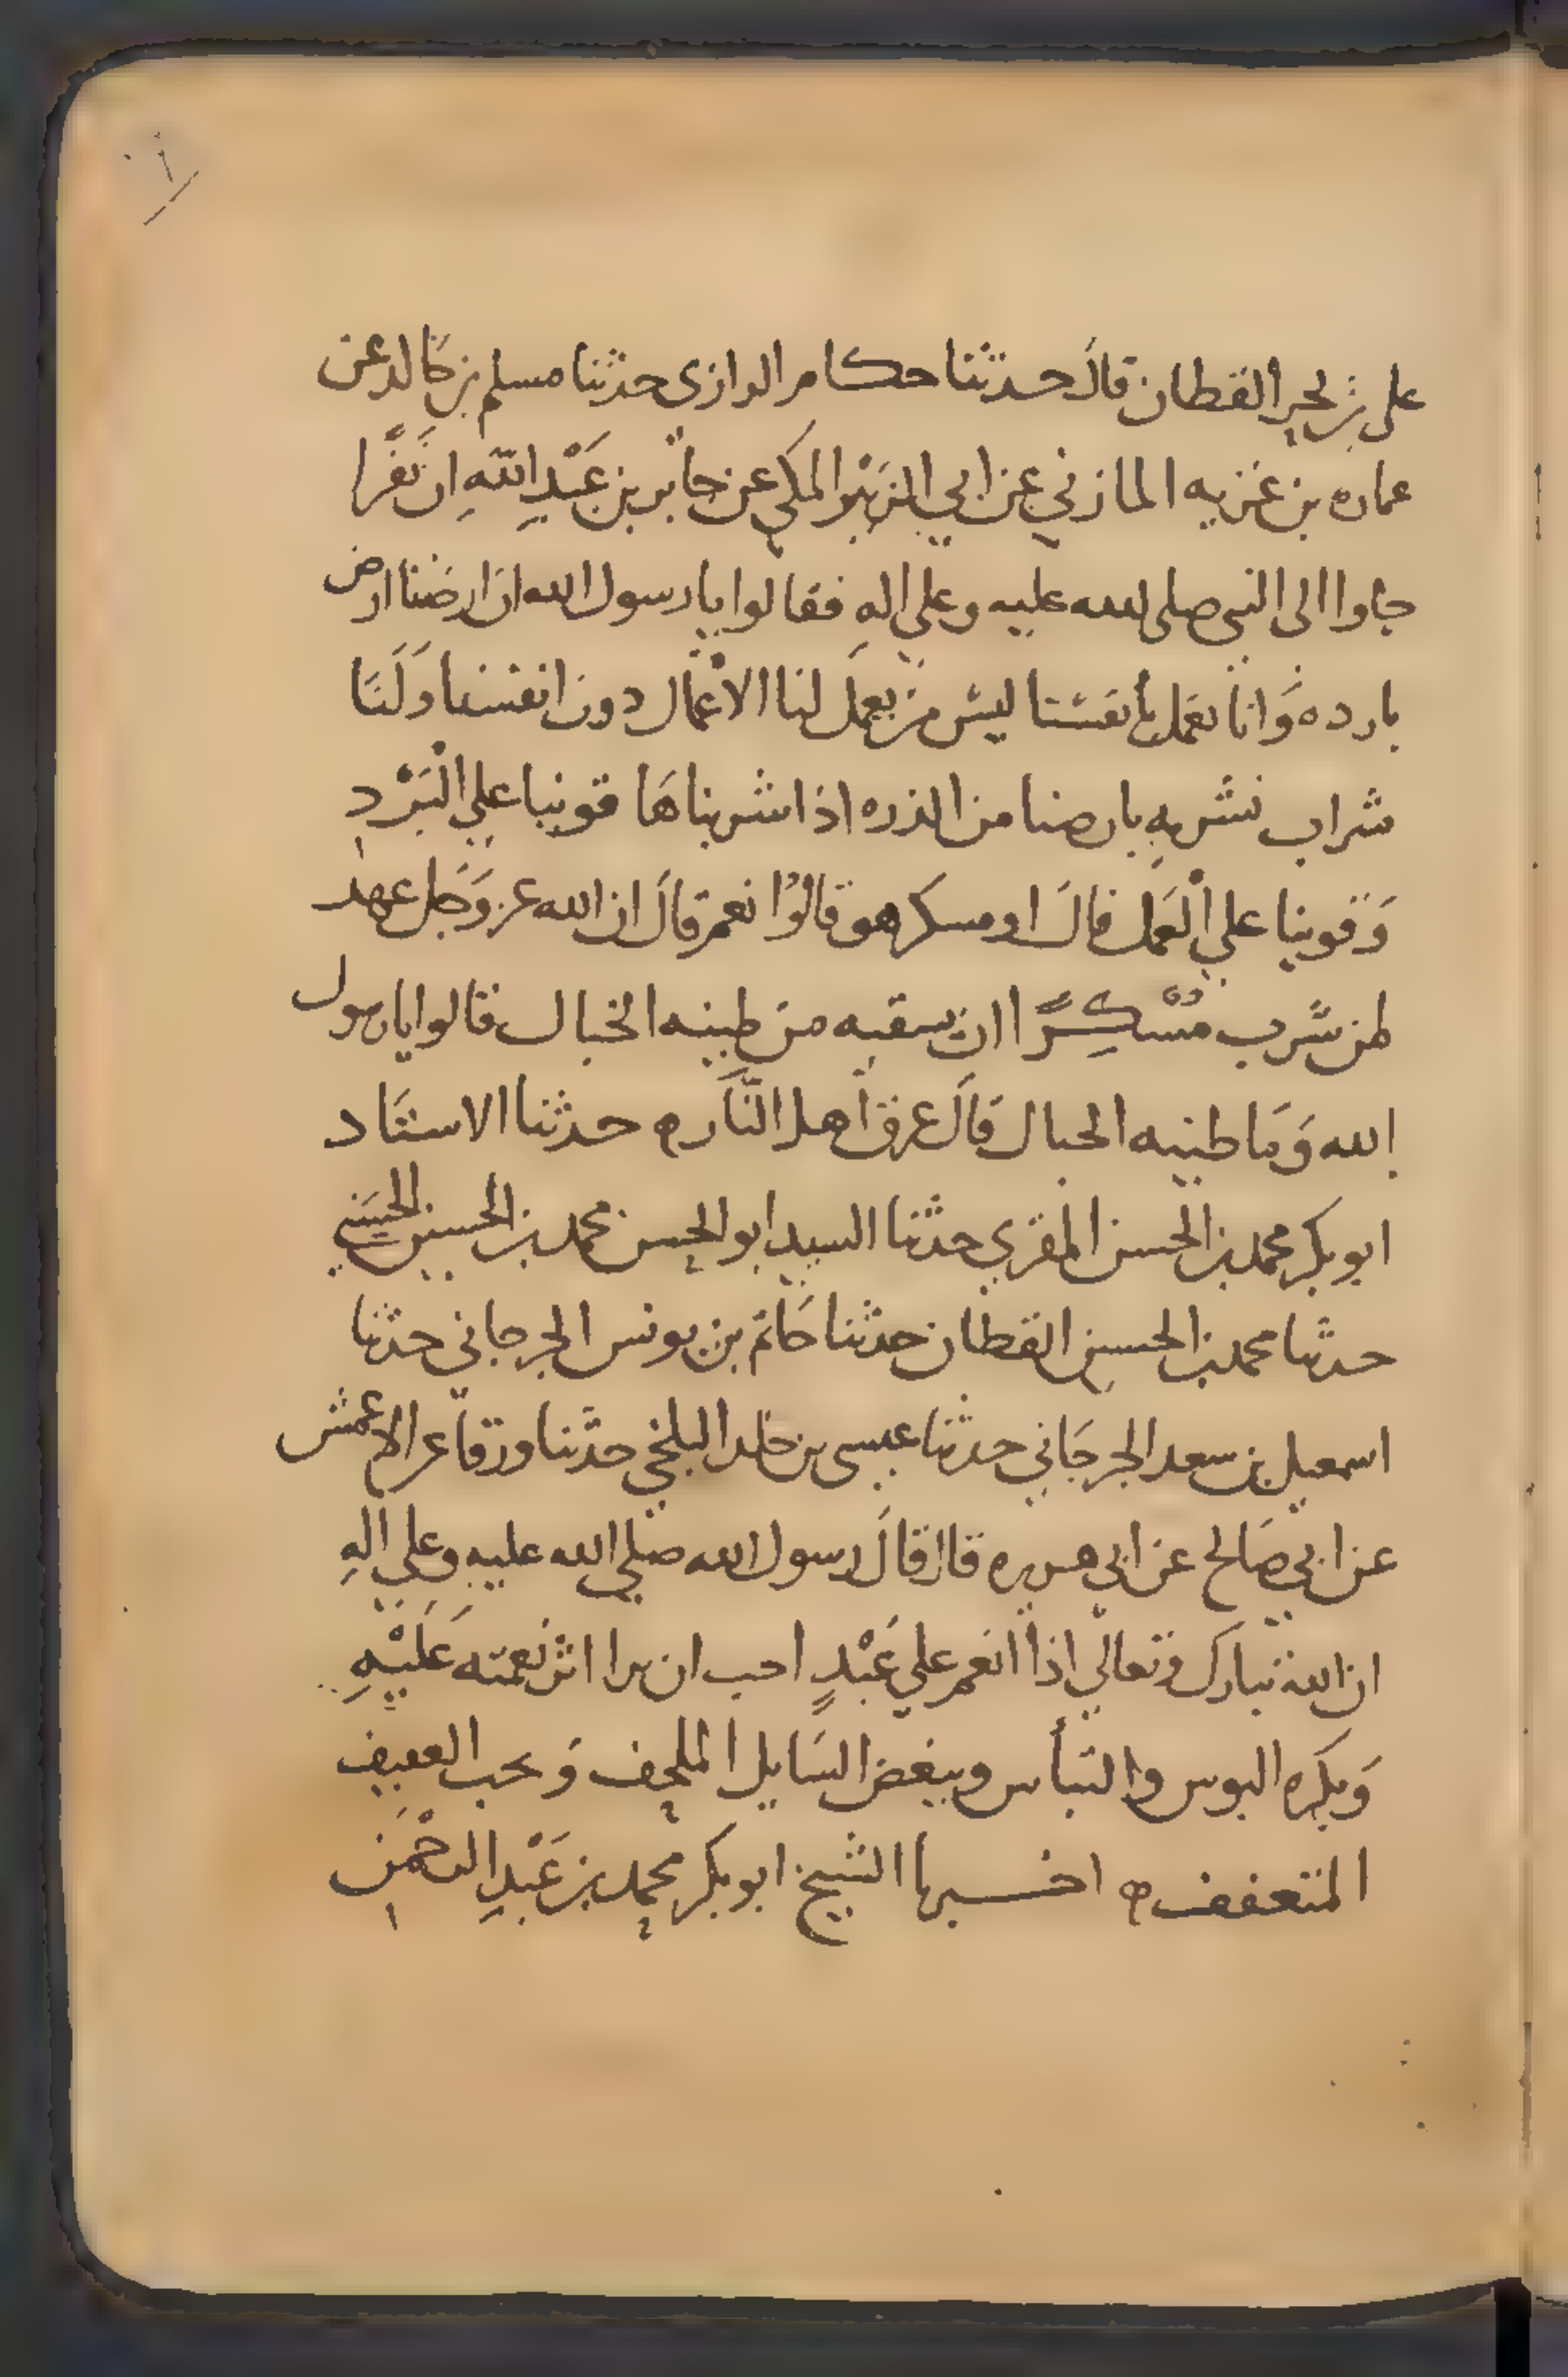 على بن بحر القطان قالَ حدثنا حكام الرازى حدثنا مسلم بن خَالد عن
عماره بن غزيه المازني عن ابي الزبَيْر المكي عن جابر بن عَبْدِ اللهِ ان نَفَرًا
جاوا الى النبى صلى الله عليه وعلي الهِ فقالوا يا رسول الله ان ارضَنا ارض
بارده وَانا نعمل بأنفسنا ليسَ من يعمل لنا الاعْمال دون انفسنا وَلَنَا
شراب نشربهِ بارضنا من الذره اذا شربناهَا قوينا علي الْبَرْدِ
وَقوينا علي الْعَمل قالَ او مسكر هو قالوُا نعم قالَ ان الله عز وَجَل عهد
لمن شَرب مُسْكِرًا ان يسقيه من طينه الخبال قالوا يا رسول
الله وَمَا طينه الخبال قَالَ عرق أهل النَّار ه حدثنا الاستَاد
ابو بكر محمد بن الحسن المقري حدثنا السيد ابو الحسن محمد بن الحسين الحسَني
حدثنا محمد بن الحسين القطان حدثنا حَاتم بن يونس الجرجاني حدثنا
اسمعيل بن سعد الجرجَاني حدثنا عيسى بن خلد البلخي حدثنا ورقا عن الاعمش
عن ابي صَالح عن ابي هريره قال قالَ رسول الله صلي الله عليهِ وعلي الهِ
ان الله تبارك وتعالي اذا انعم علي عَبْدٍ احب ان يرا اثر نعمته عَلَيْهِ
وَيكَره البوس والتبأس ويبغض السَايل الملحف وَيحب العفيف
المتعفف ه اخبرنا الشيخ ابو بكر محمد بن عَبْدِ الرحْمَن